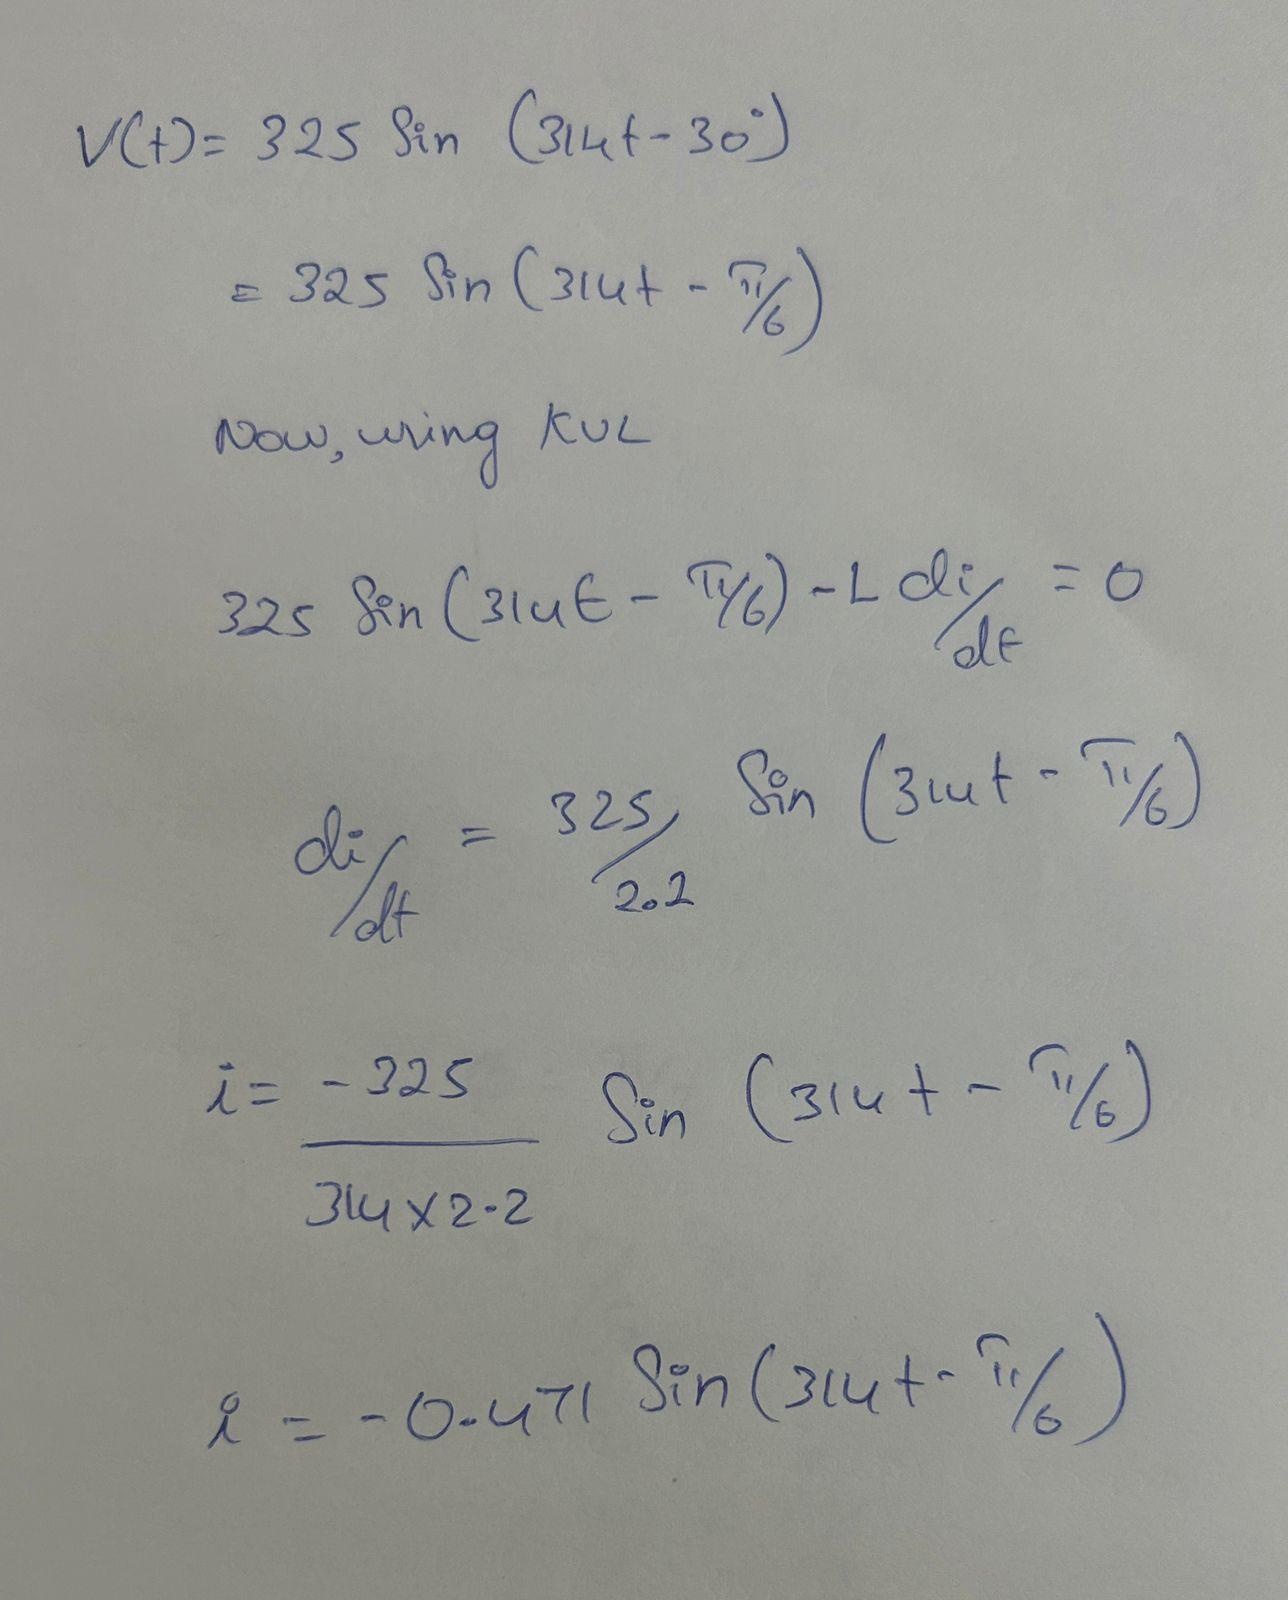 V(t) = 325 Sin (314t - 30°)
= 325 Sin (314t - π/6)
Now, using KVL
325 Sin (314t - π/6) - L di/dt = 0
di/dt = 325/2.2 Sin (314t - π/6)
i = -325/314×2.2 Sin (314t - π/6)
i = -0.471 Sin (314t - π/6)